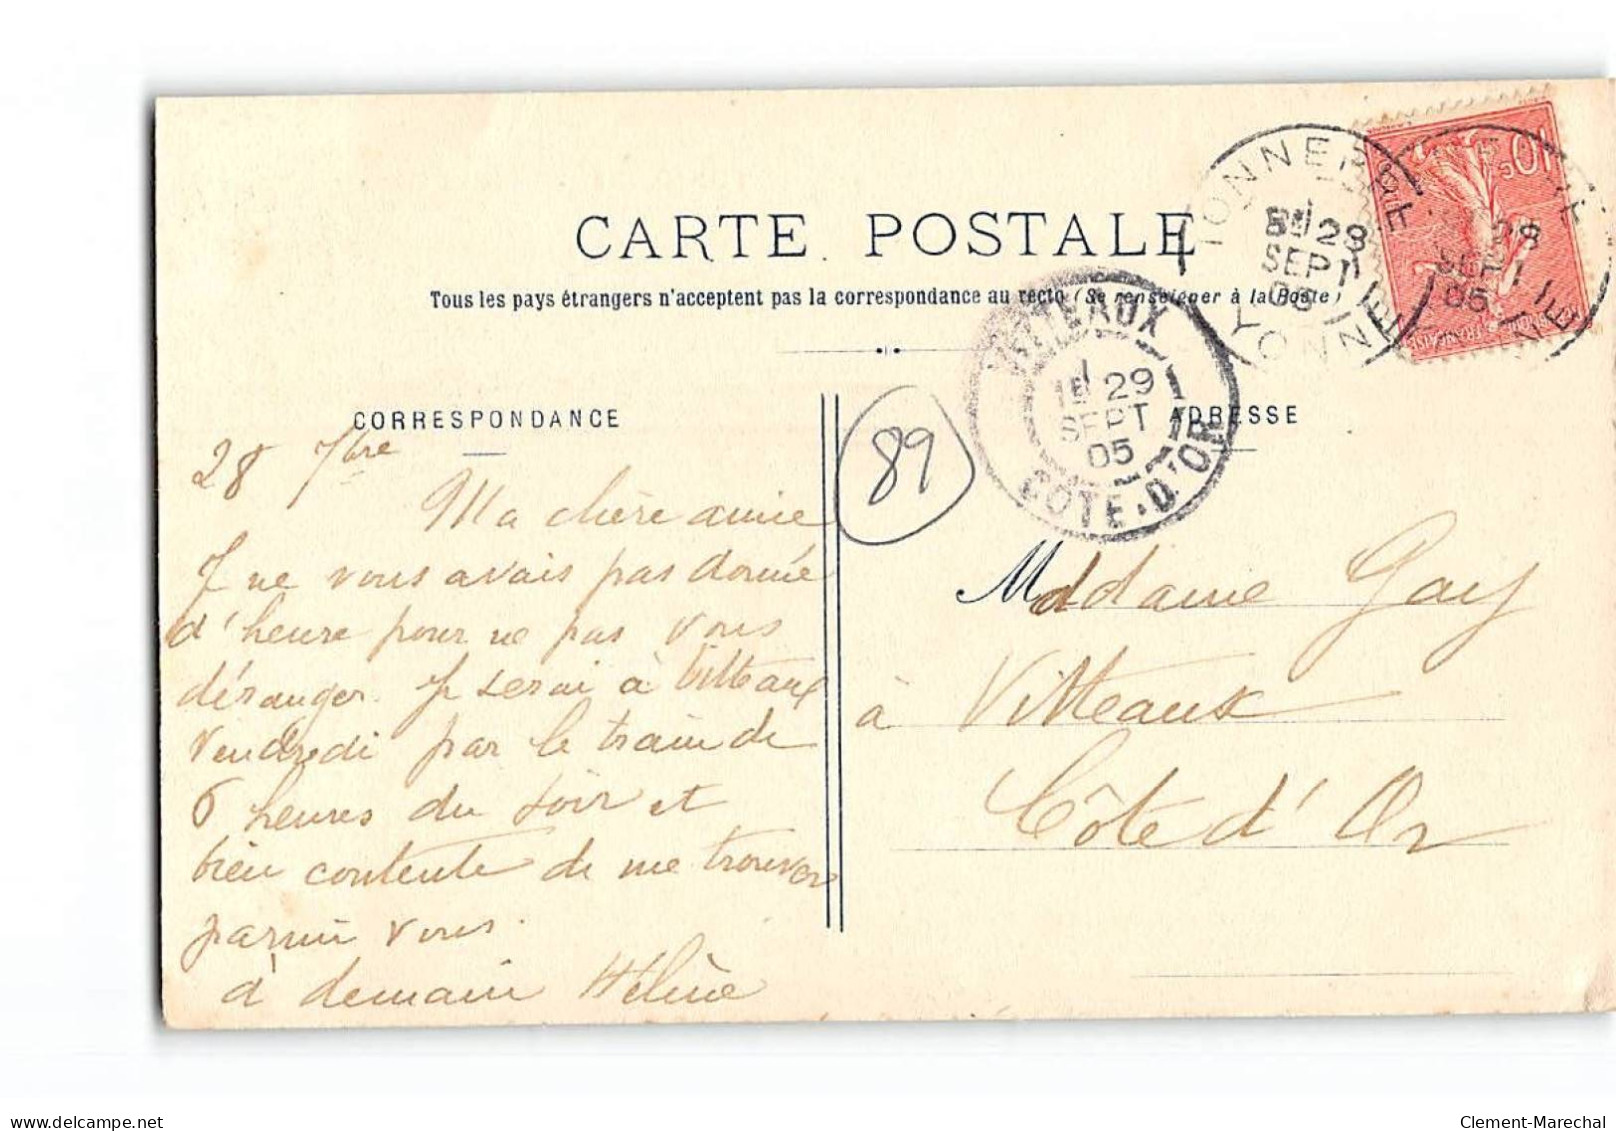 CARTE POSTALE
Tous les pays étrangers n'acceptent pas la correspondance au recto (Se renseigner à la Poste)
CORRESPONDANCE
ADRESSE
28 7bre
Ma chère amie
Je ne vous avais pas donné
d'heure pour ne pas vous
déranger. Je serai à Vitteaux
Vendredi par le train de
6 heures du soir et
bien contente de me trouver
parmi vous.
à demain Hélène
89
Madame Gay
à Vitteaux
Côte d'Or
TONNERRE
28
SEPT
05
YONNE
28
SEPT
05
VITTEAUX
29
SEPT
05
CÔTE-D'OR
10c
FRANÇAISE
Clement-Marechal